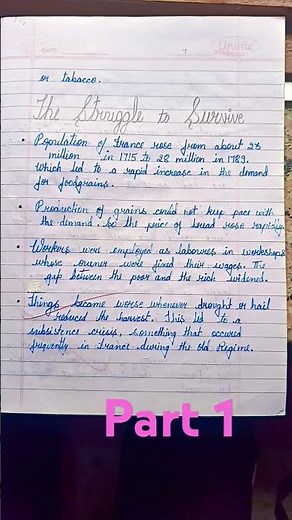 DATE
Unirite
or tabacco.
The Struggle to Survive
• Population of France rose from about 23
million in 1715 to 28 million in 1789.
which led to a rapid increase in the demand
for foodgrains.
• Production of grains could not keep pace with
the demand. So the price of bread rose rapidly.
• Workers were employed as labourers in workshops
whose owner were fixed their wages. The
gap between the poor and the rich widened.
• Things became worse whenever drought or hail
reduced the harvest. This led to a
subsistence crisis, something that occured
frequently in France during the Old Regime.
Part 1